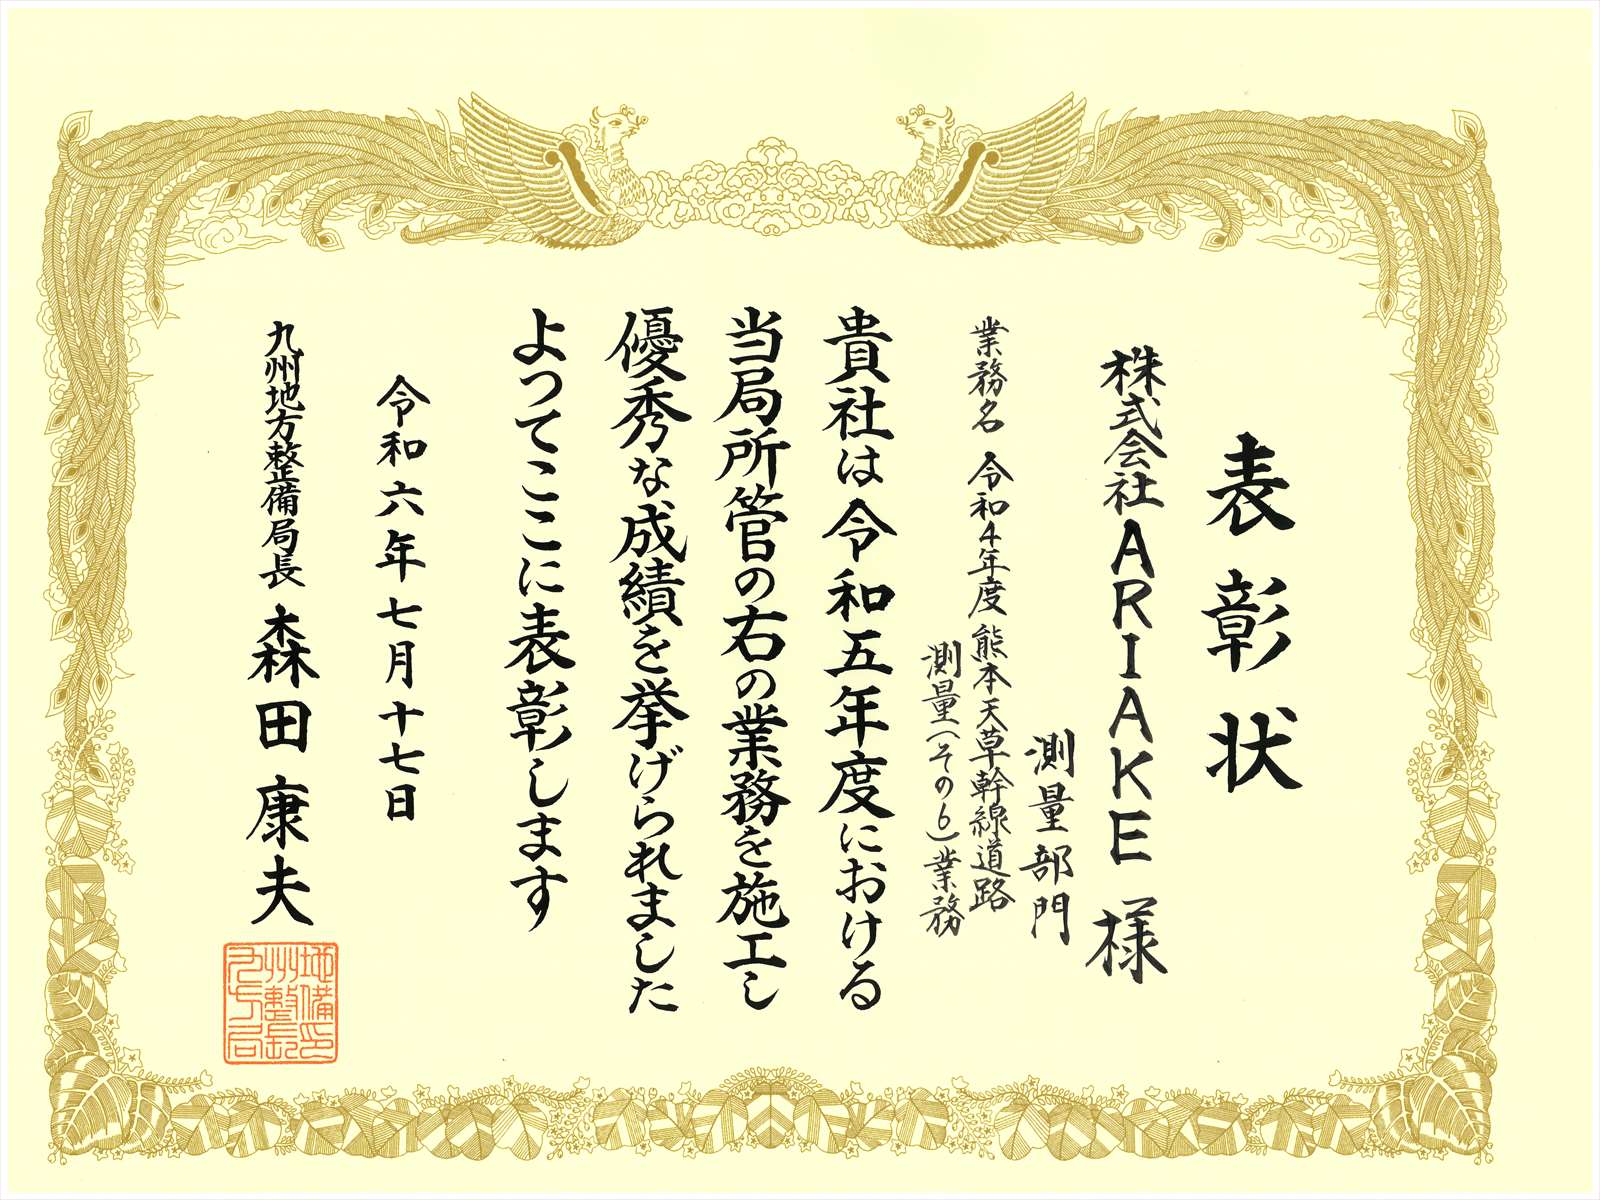 表彰状
株式会社ARIAKE様
測量部門
業務名 令和4年度熊本天草幹線道路
測量(その6)業務
貴社は令和五年度における
当局所管の右の業務を施工し
優秀な成績を挙げられました
よつてここに表彰します
令和六年七月十七日
九州地方整備局長 森田康夫